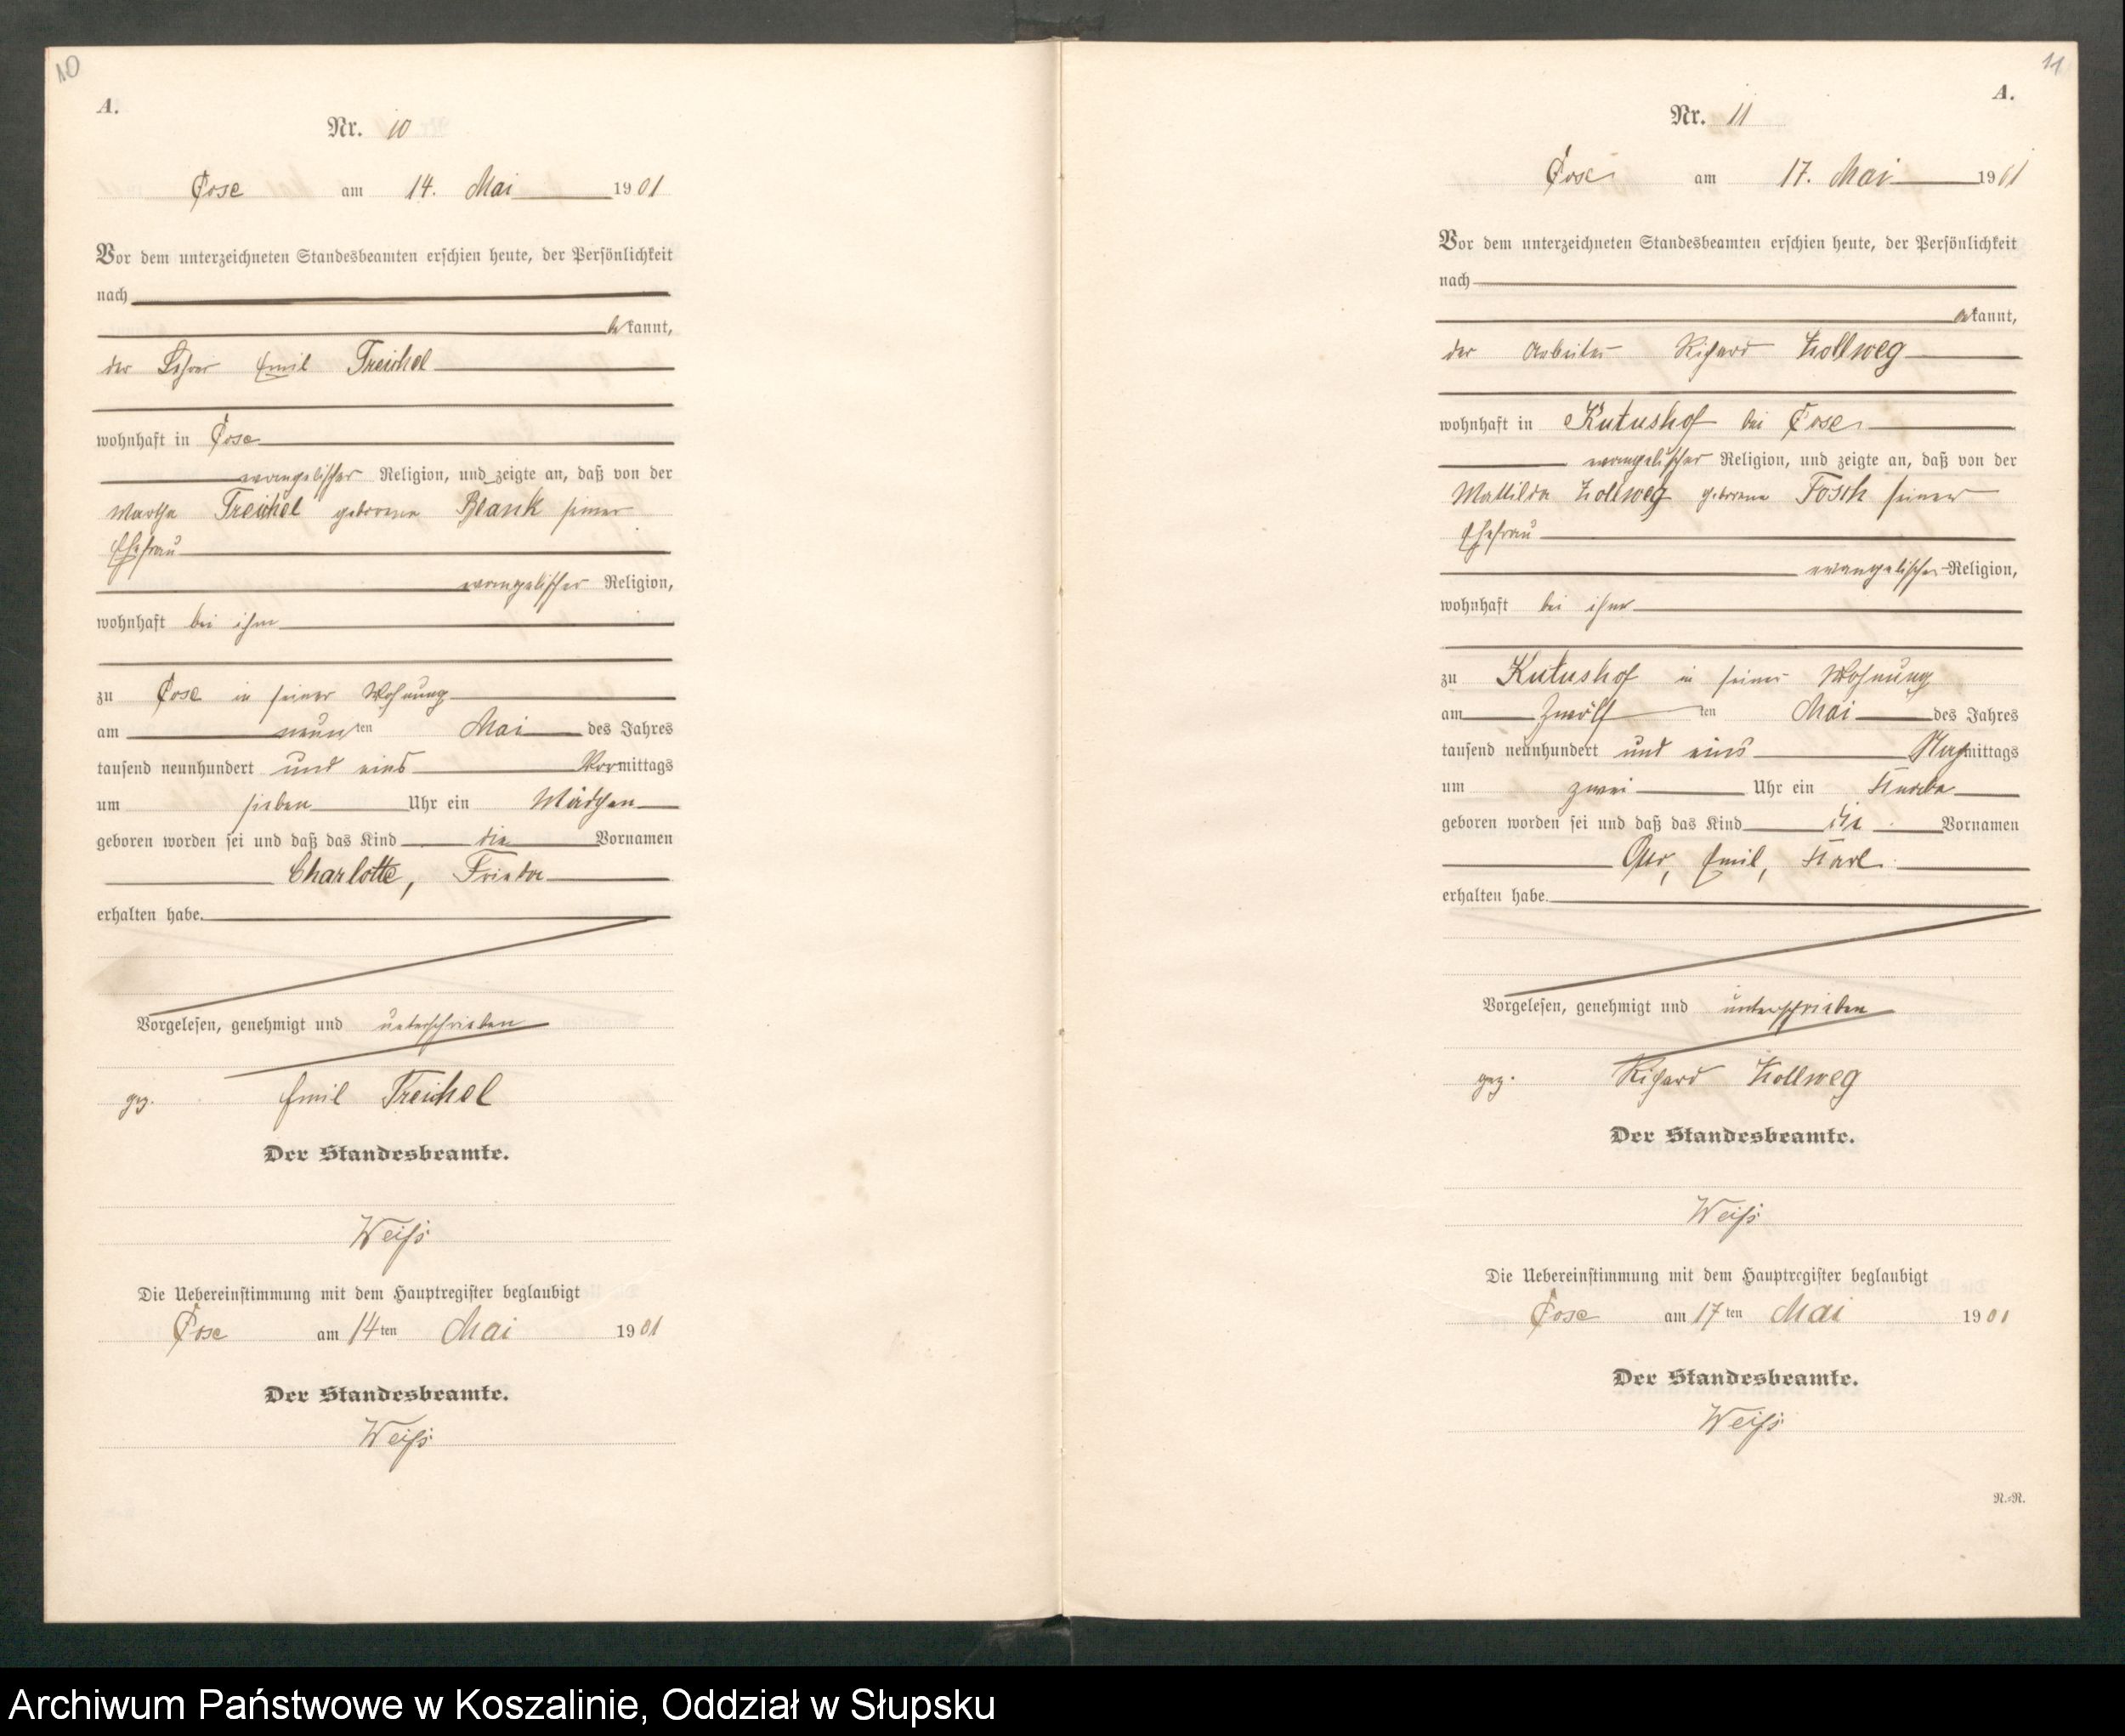 10
A.
Nr. 10
Cose am 14. Mai 1901
Vor dem unterzeichneten Standesbeamten erschien heute, der Persönlichkeit
nach
bekannt,
der Lehrer Emil Treichel
wohnhaft in Cose
evangelischer Religion, und zeigte an, daß von der
Martha Treichel geborene Blank seiner
Ehefrau
evangelischer Religion,
wohnhaft bei ihm
zu Cose in seiner Wohnung
am neunten Mai des Jahres
tausend neunhundert und eins Vormittags
um sieben Uhr ein Mädchen
geboren worden sei und daß das Kind die Vornamen
Charlotte, Frieda
erhalten habe.
Vorgelesen, genehmigt und unterschrieben
gez. Emil Treichel
Der Standesbeamte.
Weiß
Die Uebereinstimmung mit dem Hauptregister beglaubigt
Cose am 14ten Mai 1901
Der Standesbeamte.
Weiß
11
A.
Nr. 11
Cose am 17. Mai 1901
Vor dem unterzeichneten Standesbeamten erschien heute, der Persönlichkeit
nach
bekannt,
der Arbeiter Richard Kollweg
wohnhaft in Kutushof bei Cose
evangelischer Religion, und zeigte an, daß von der
Kollweg geborene seiner
Ehefrau
evangelischer Religion,
wohnhaft bei ihm
zu Kutushof in seiner Wohnung
am zwölften Mai des Jahres
tausend neunhundert und eins Nachmittags
um zwei Uhr ein Knabe
geboren worden sei und daß das Kind die Vornamen
Emil, Karl
erhalten habe.
Vorgelesen, genehmigt und unterschrieben
gez. Richard Kollweg
Der Standesbeamte.
Weiß
Die Uebereinstimmung mit dem Hauptregister beglaubigt
Cose am 17ten Mai 1901
Der Standesbeamte.
Weiß
N.=R.
Archiwum Państwowe w Koszalinie, Oddział w Słupsku